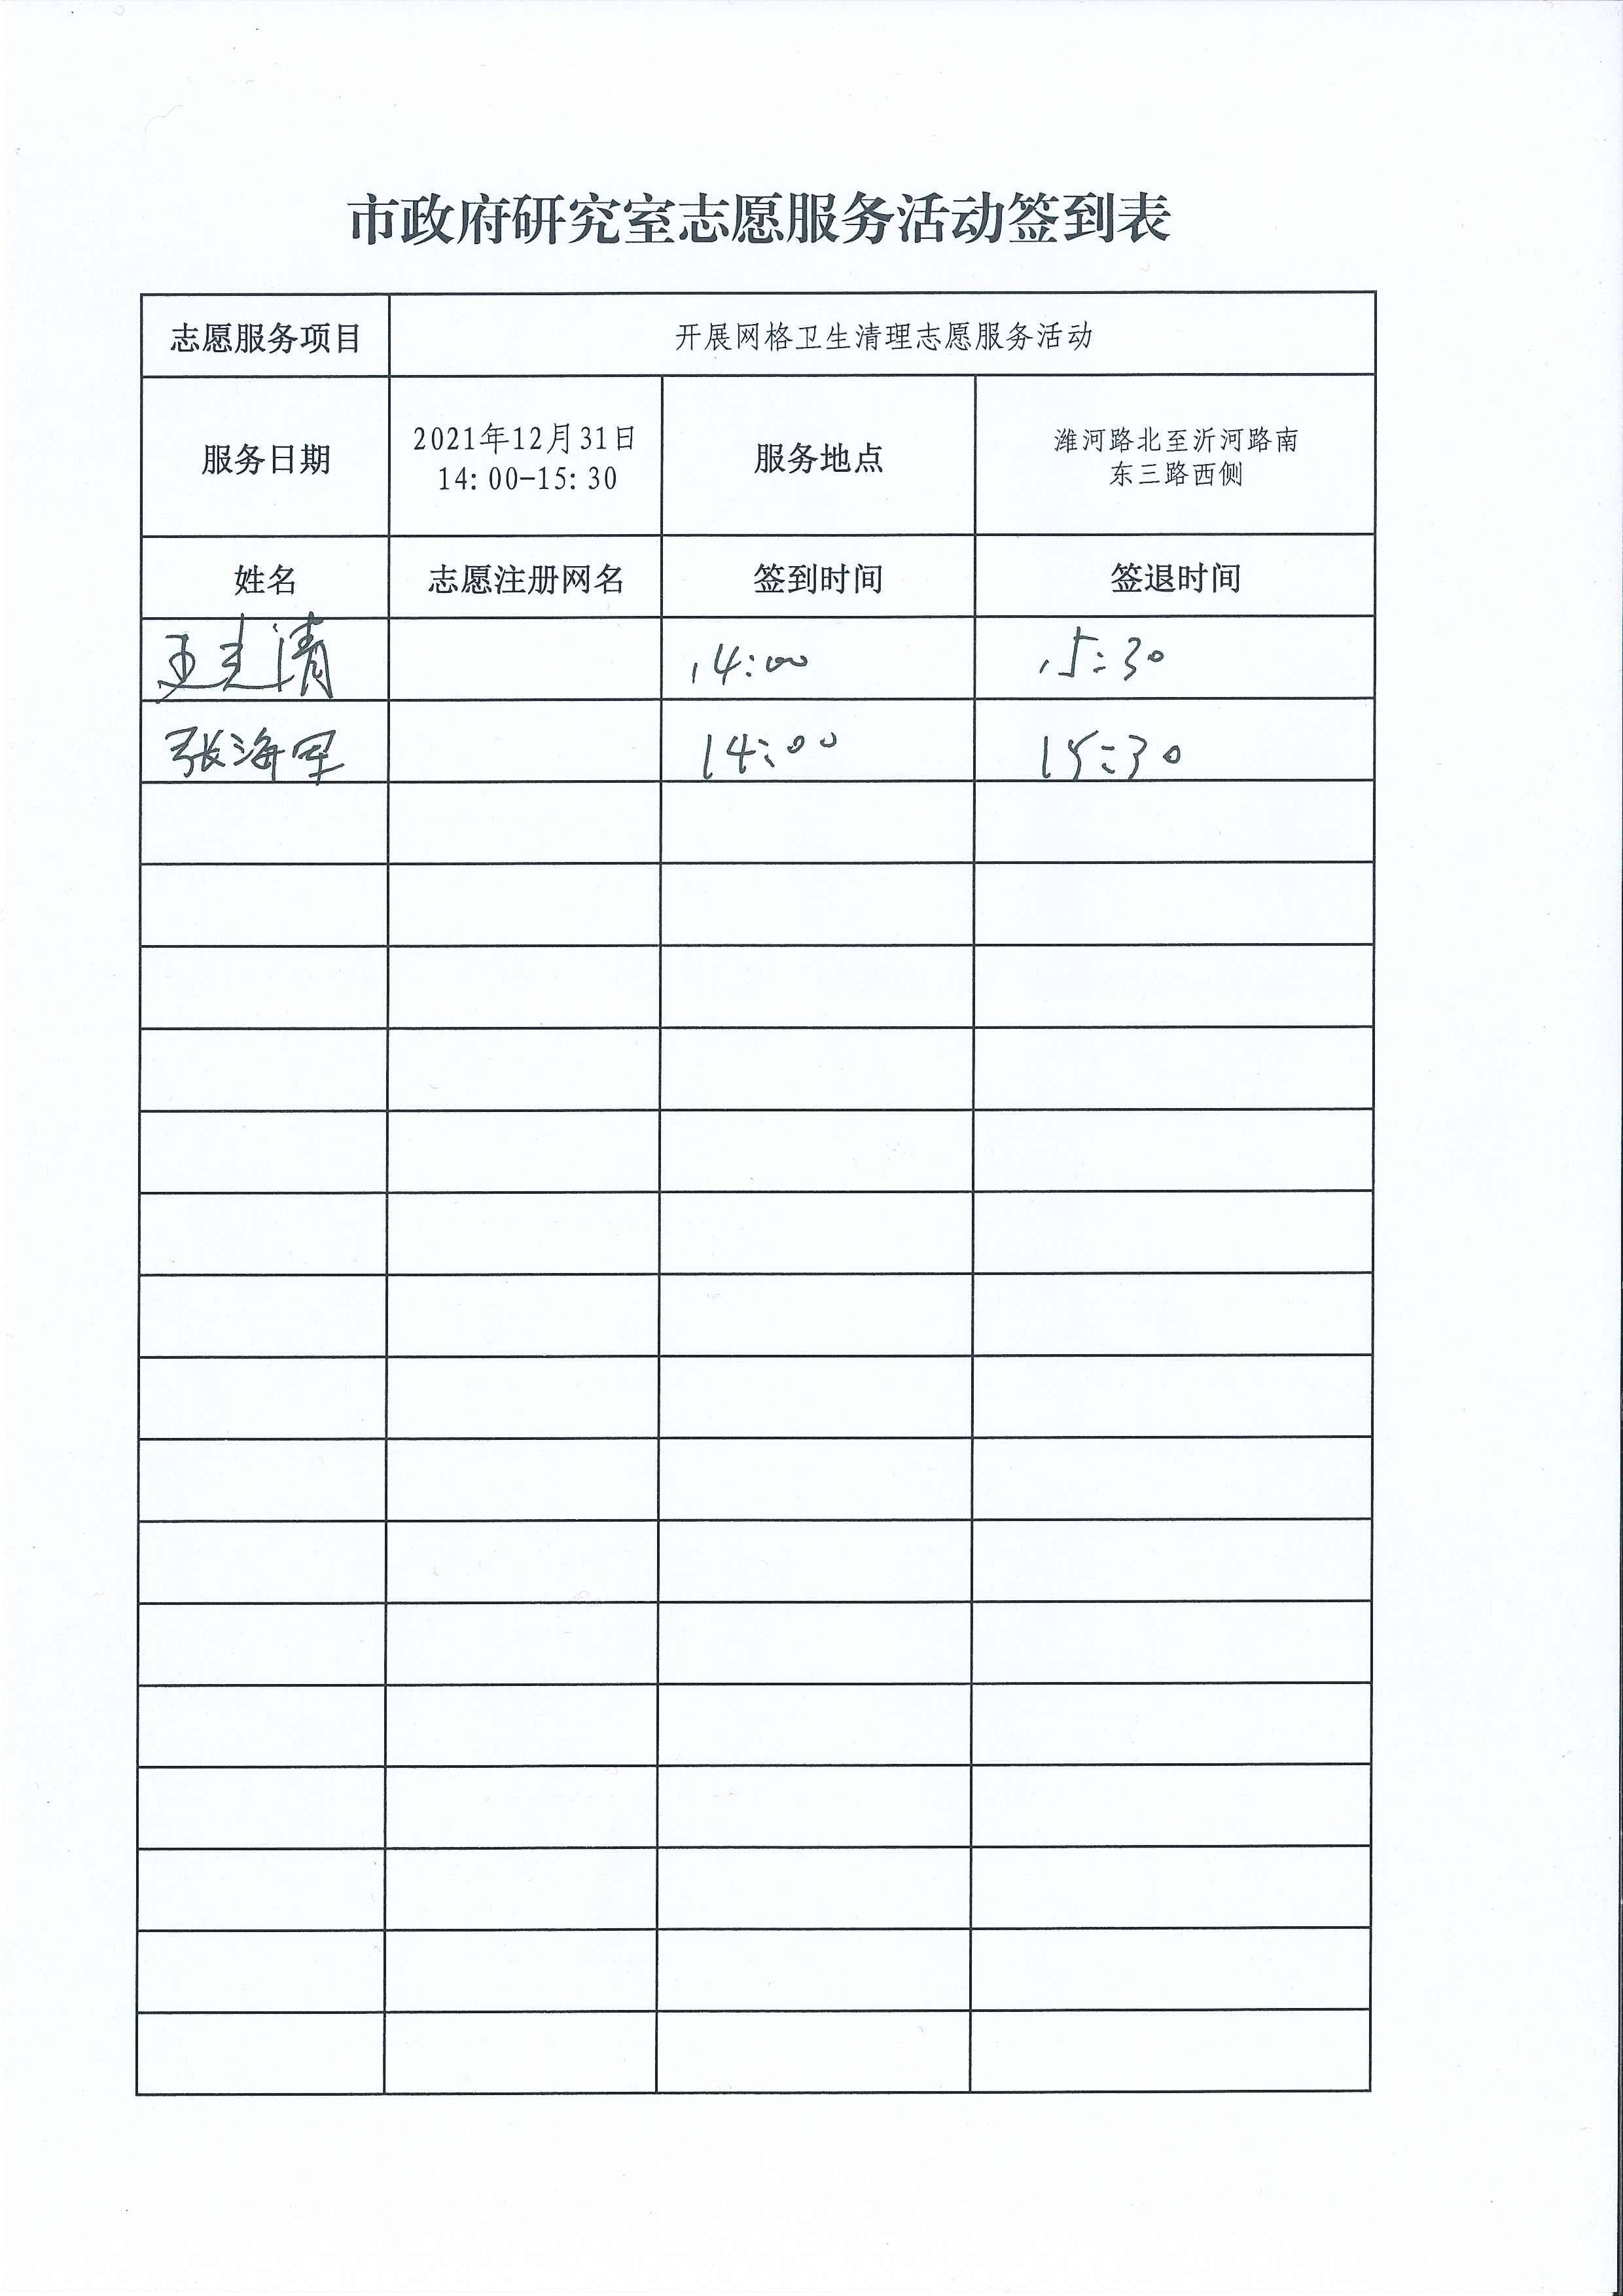 市政府研究室志愿服务活动签到表
志愿服务项目 开展网格卫生清理志愿服务活动
服务日期 2021年12月31日 14:00-15:30 服务地点 潍河路北至沂河路南 东三路西侧
姓名 志愿注册网名 签到时间 签退时间
清 14:00 15:30
张海军 14:00 15:30